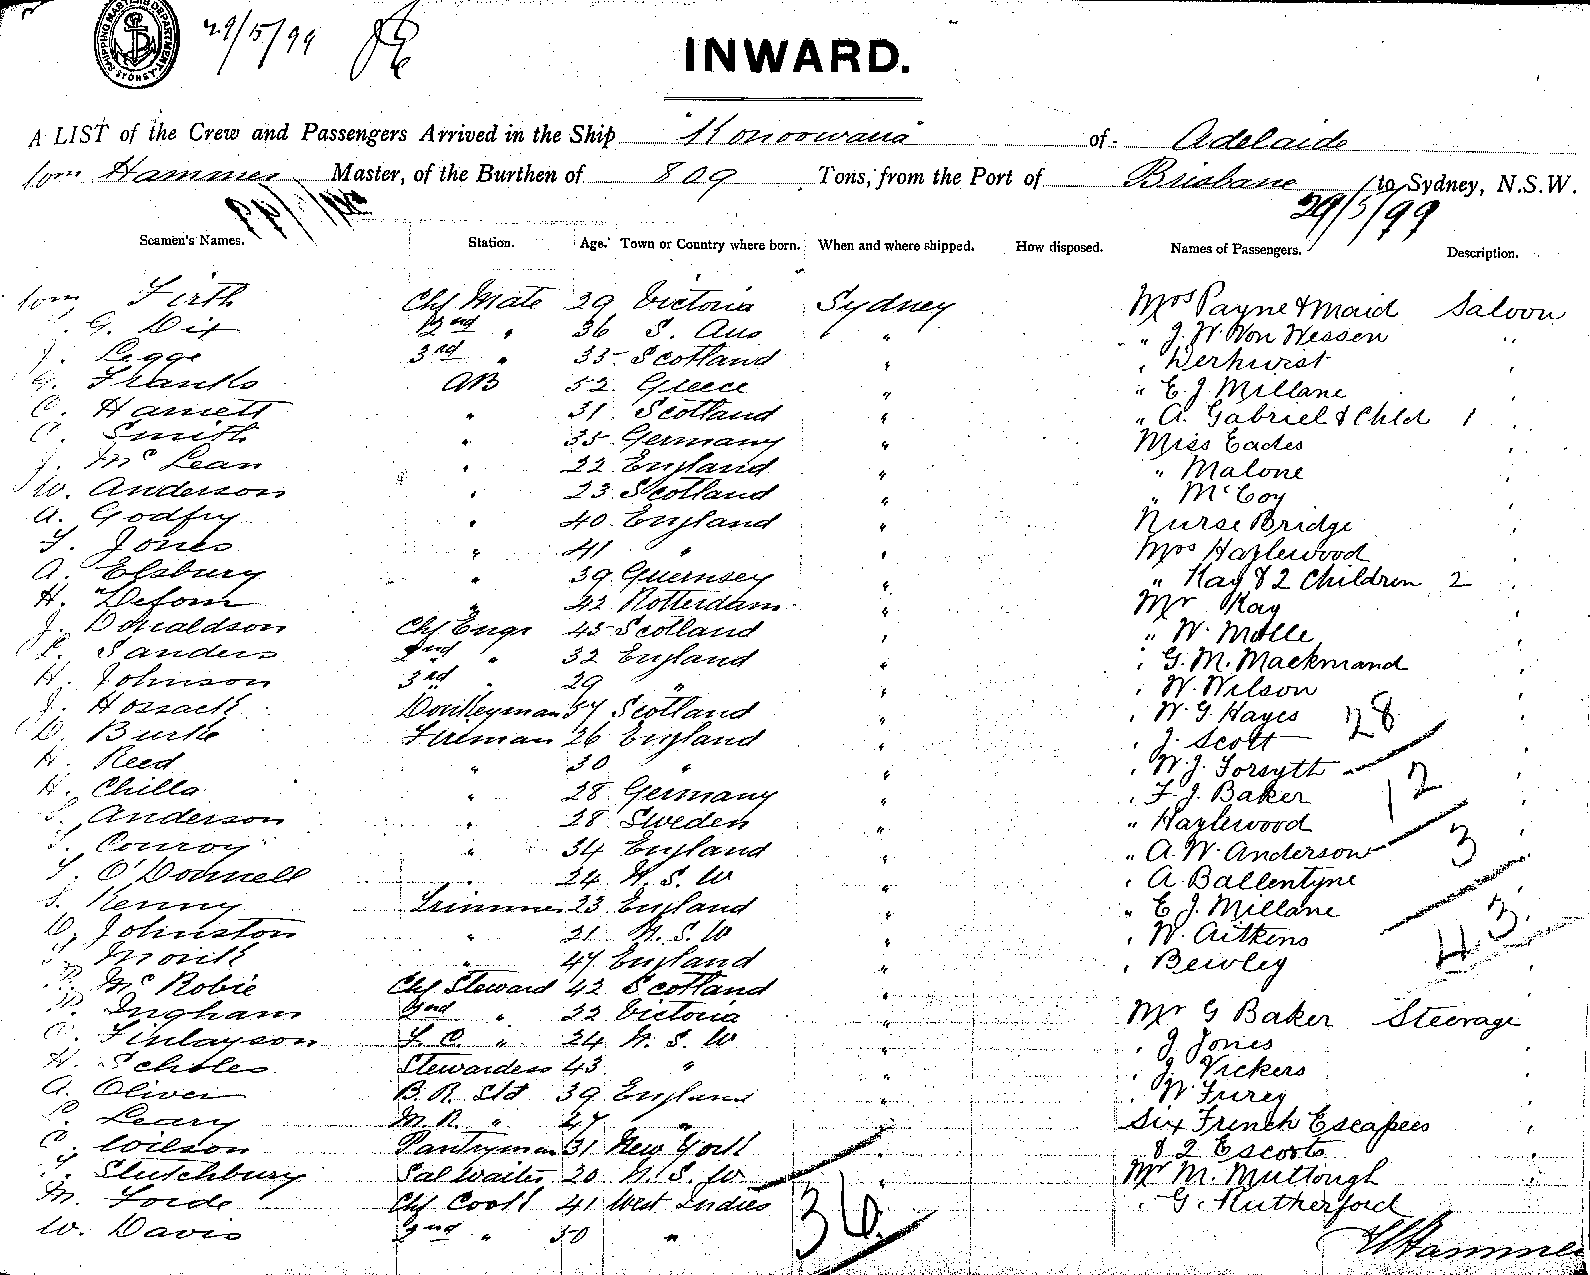 SHIPPING MASTERS DEPARTMENT SYDNEY
29/5/99
INWARD.
A LIST of the Crew and Passengers Arrived in the Ship "Konoowarra" of Adelaide
Hammer Master, of the Burthen of 809 Tons, from the Port of Brisbane to Sydney, N.S.W.
29/5/99
Seamen's Names. Station. Age. Town or Country where born. When and where shipped. How disposed. Names of Passengers. Description.
Firth Chf Mate 29 Victoria Sydney Mrs Payne & Maid Saloon
G. Dix 2nd " 36 S. Aus " " J. W. Von Wessen "
J. Legge 3rd " 35 Scotland " " Derhurst "
G. Franks AB 52 Greece " " E. J. Millane "
C. Harnett " 31 Scotland " " A. Gabriel & Chld 1 "
C. Smith " 35 Germany " Miss Eades "
J. McLean " 22 England " " Malone "
W. Anderson " 23 Scotland " " McCoy "
A. Godfry " 40 England " Nurse Bridge "
T. Jones " 41 " " Mrs Hazlewood "
A. Elsbury " 39 Guernsey " " Kay & 2 Children 2 "
H. " 42 Rotterdam " Mr Kay "
J. Donaldson Chf Engr 45 Scotland " " W. Molle "
Sanders 2nd " 32 England " " G. M. Mackmand "
H. Johnson 3rd " 29 " " " W. Wilson "
J. Hossack Donkeyman 57 Scotland " " W. G. Hayes "
D. Burke Fireman 26 England " " J. Scott "
H. Reed " 30 " " " W. J. Forsyth "
H. Chilla " 28 Germany " " F. J. Baker "
S. Anderson " 28 Sweden " " Hazlewood "
T. Conroy " 34 England " " A. W. Anderson "
T. O'Donnell " 24 N. S. W " " A. Ballentyne "
S. Kenny Trimmer 23 England " " E. J. Millane "
D. Johnston " 21 N. S. W " " W. Aitkens "
" 47 England " " Bewley "
McRobie Chf Steward 42 Scotland "
Ingham 2nd " 22 Victoria " Mr G Baker Steerage
C. Finlayson F. C. " 24 N. S. W " " J Jones "
H. Scholes Stewardess 43 " " " J. Vickers "
A. Oliver B. R. Std 39 England " " W Furey "
Leary M. R. " 27 " " Six French Escapees "
C. Wilson Pantryman 31 New York " & 2 Escorts "
Slutchbury Sal Waiter 20 N. S. W " Mr M. Muttough "
M. Forde Chf Cook 41 West Indies " " G. Rutherford "
W. Davis 2nd " 50 "
28
12
3
43
36
Hammer